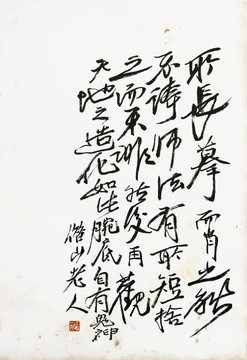 所長摹而肖之能
不誇師法有所短捨
之而不誹然後再觀
天地之造化如此腕底自有鬼神
借山老人